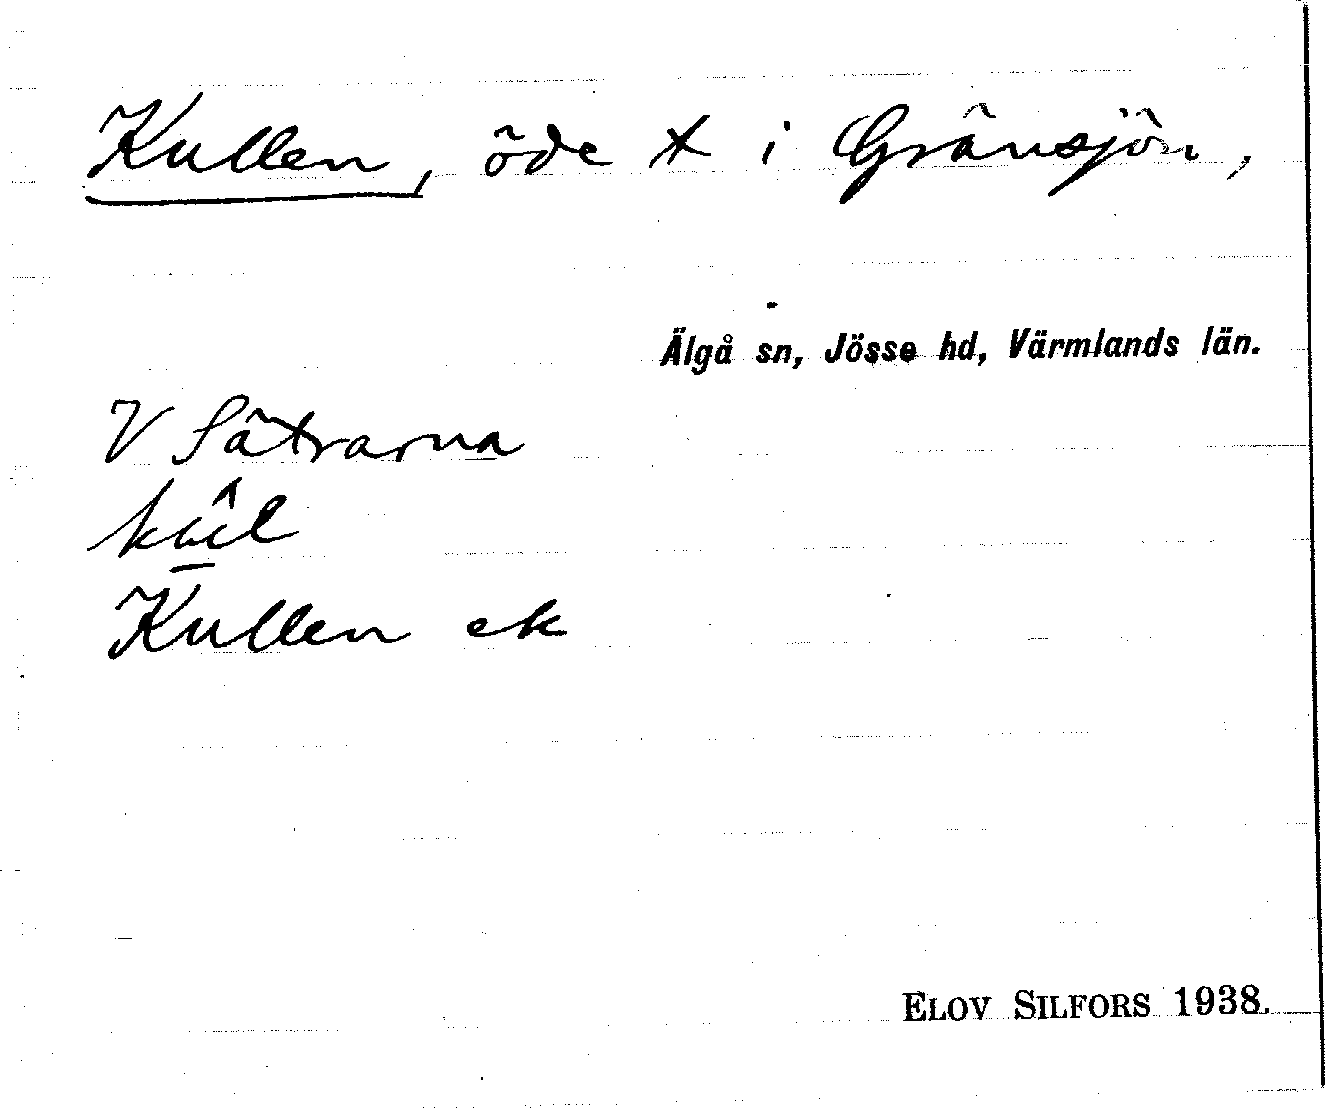 Kullen, öde t i Gränsjön,
Älgå sn, Jösse hd, Värmlands län.
V Sätrarna
Kullen ek
ELOV SILFORS 1938.